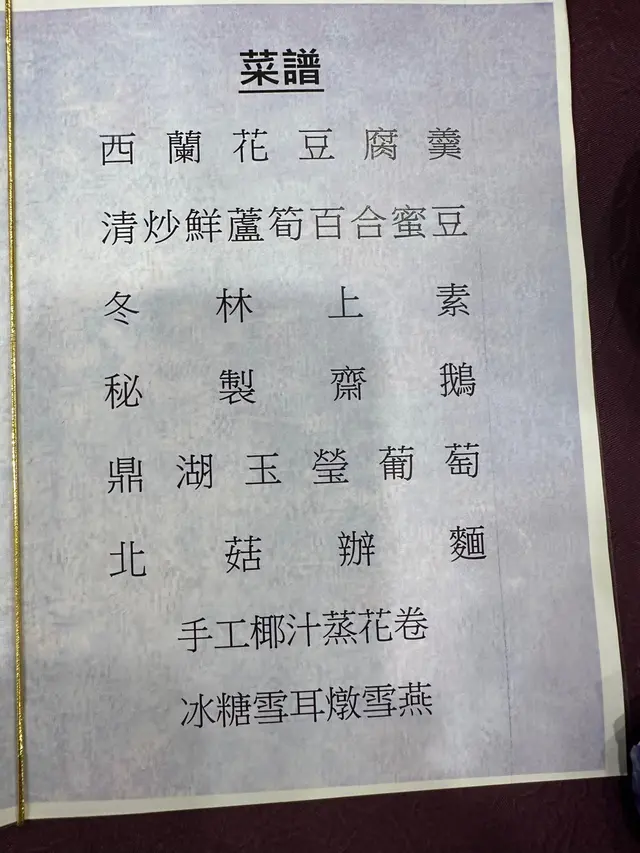 菜譜
西蘭花豆腐羹
清炒鮮蘆筍百合蜜豆
冬林上素
秘製齋鵝
鼎湖玉瑩葡萄
北菇辦麵
手工椰汁蒸花卷
冰糖雪耳燉雪燕